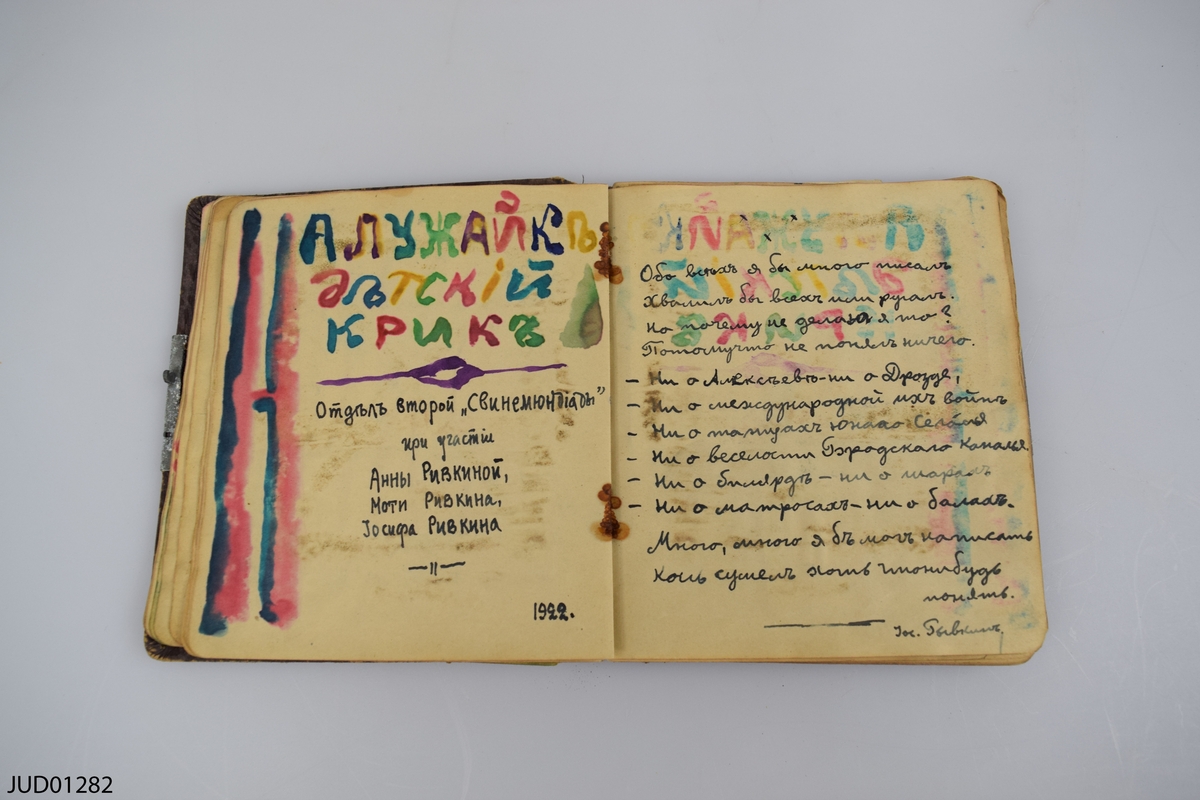 АЛУЖАЙКЪ
ДѢТСКІЙ
КРИКЪ
Отдѣлъ второй „Свинемюндіады”
при участіи
Анны Ривкиной,
Моти Ривкина,
Іосифа Ривкина
—„—
1922.
Обо всѣхъ я бы много писалъ
Хвалилъ бы всехъ или ругалъ.
Но почему не делаю я то?
Потомучто не понялъ ничего.
– Ни о Алексѣевѣ – ни о Дрозде,
– Ни о международной ихъ войнѣ
– Ни о танцахъ юнаго
– Ни о веселости Бродскаго Каналья.
– Ни о билярдѣ – ни о шарахъ
– Ни о матросахъ – ни о балахъ.
Много, много я бъ могъ написать
Коль сумелъ хоть чтонибудь
понять.
Іос. Рывкинъ.
JUD01282